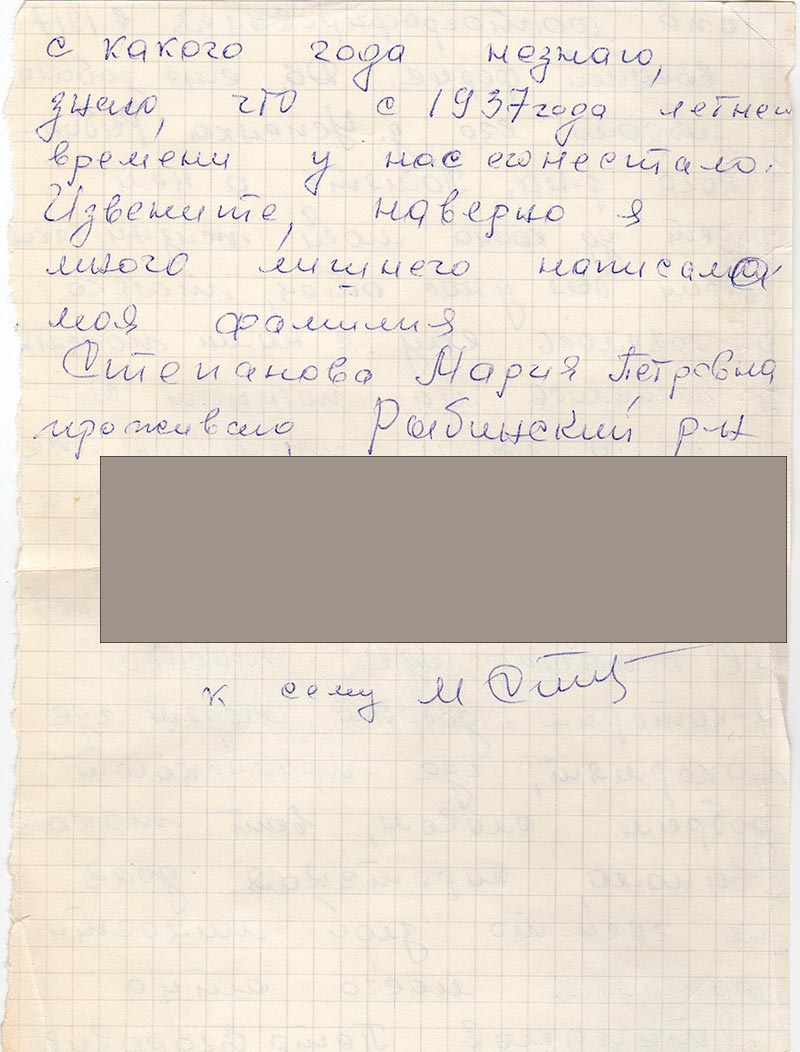 с какого года незнаю,
знаю, что с 1937 года летнем
времени у нас его нестало.
Извените, наверно я
много лишнего написала
моя фамилия
Степанова Мария Петровна
проживаю, Рыбинский р-н
к сему М Степ